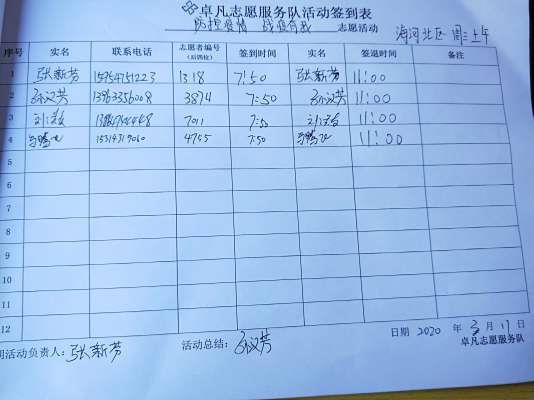 卓凡志愿服务队活动签到表
防控疫情 战疫有我 志愿活动 海河北区 周三上午
序号 实名 联系电话 志愿者编号 签到时间 实名 签退时间 备注
(后四位)
1 张新芳 1318 7:50 张新芳 11:00
2 孙汉芳 13963356008 3874 7:50 孙汉芳 11:00
3 7011 7:50 11:00
4 15314319060 4755 7:50 11:00
5
6
7
8
9
10
11
12
日期 2020 年 3 月 11 日
活动负责人: 张新芳 活动总结: 孙汉芳 卓凡志愿服务队